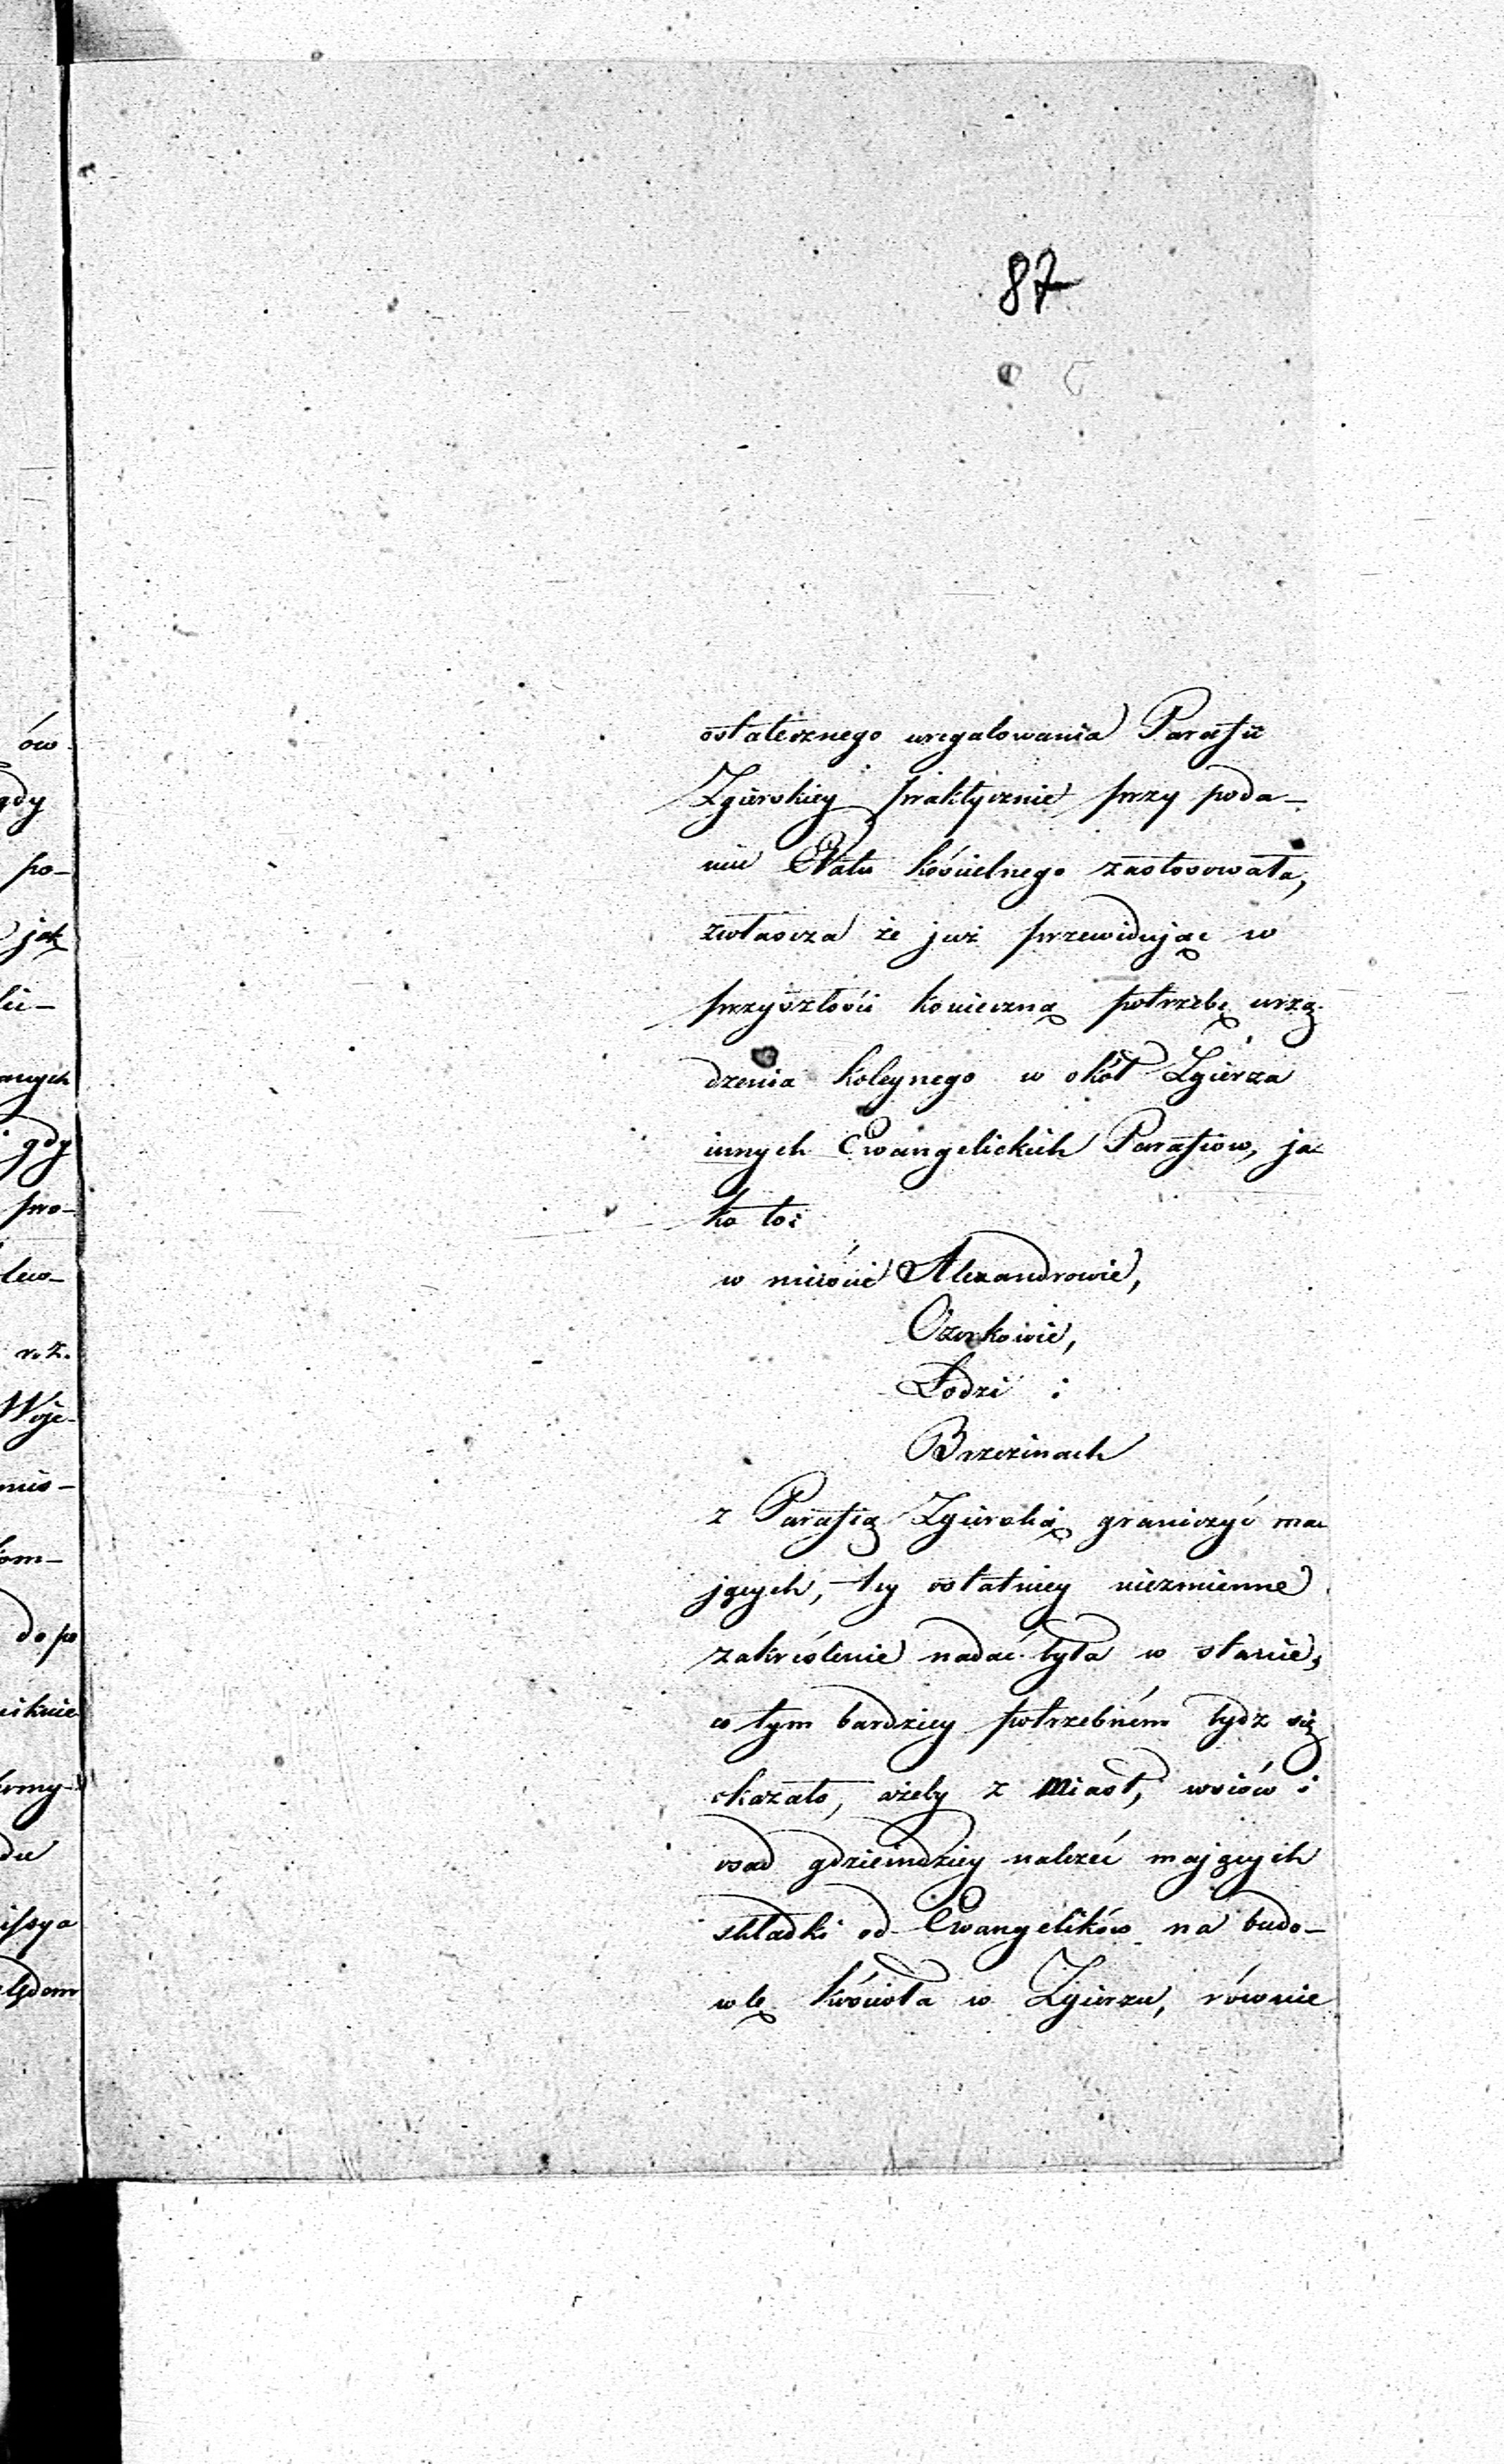 87
ostatecznego uregulowania Parafii
Zgierskiey praktycznie przy poda-
niu Etatu kościelnego zastosowała,
zwłascza że już przewidując w
przyszłości konieczną potrzebę urzą-
dzenia koleynego w okół Zgierza
innych Ewangelickich Parafiow, ja-
ko to:
w mieście Alexandrowie,
Ozorkowie,
Łodzi i
Brzezinach
z Parafią Zgierską graniczyć ma-
jących, tey ostatniey niezmienne
zakréslenie nadać była w stanie,
co tym bardziey potrzebném bydz się
okazało, ażeby z Miast, wsiów i
osad gdzieindziey należeć mających
składki od Ewangelików na budo-
wlę kościoła w Zgierzu, równie
ów
gdy
po-
jak
anych
gdy
pro-
r. z.
Woje-
mis-
kom-
do po